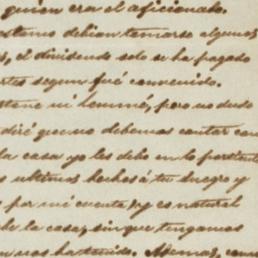 quién era el aficionado.
estamo debian tomarse algunos
s, el dividendo solo se ha pagado
rtes segun fué convenido.
pero no dudo
diré que no debemos contar con
la casa yo les debo en lo particular
s ultimos hechos á tu suegro y
por mi cuenta, y es natural
de la casa, sin que tengamos
nos ha tenido. Ademas, como